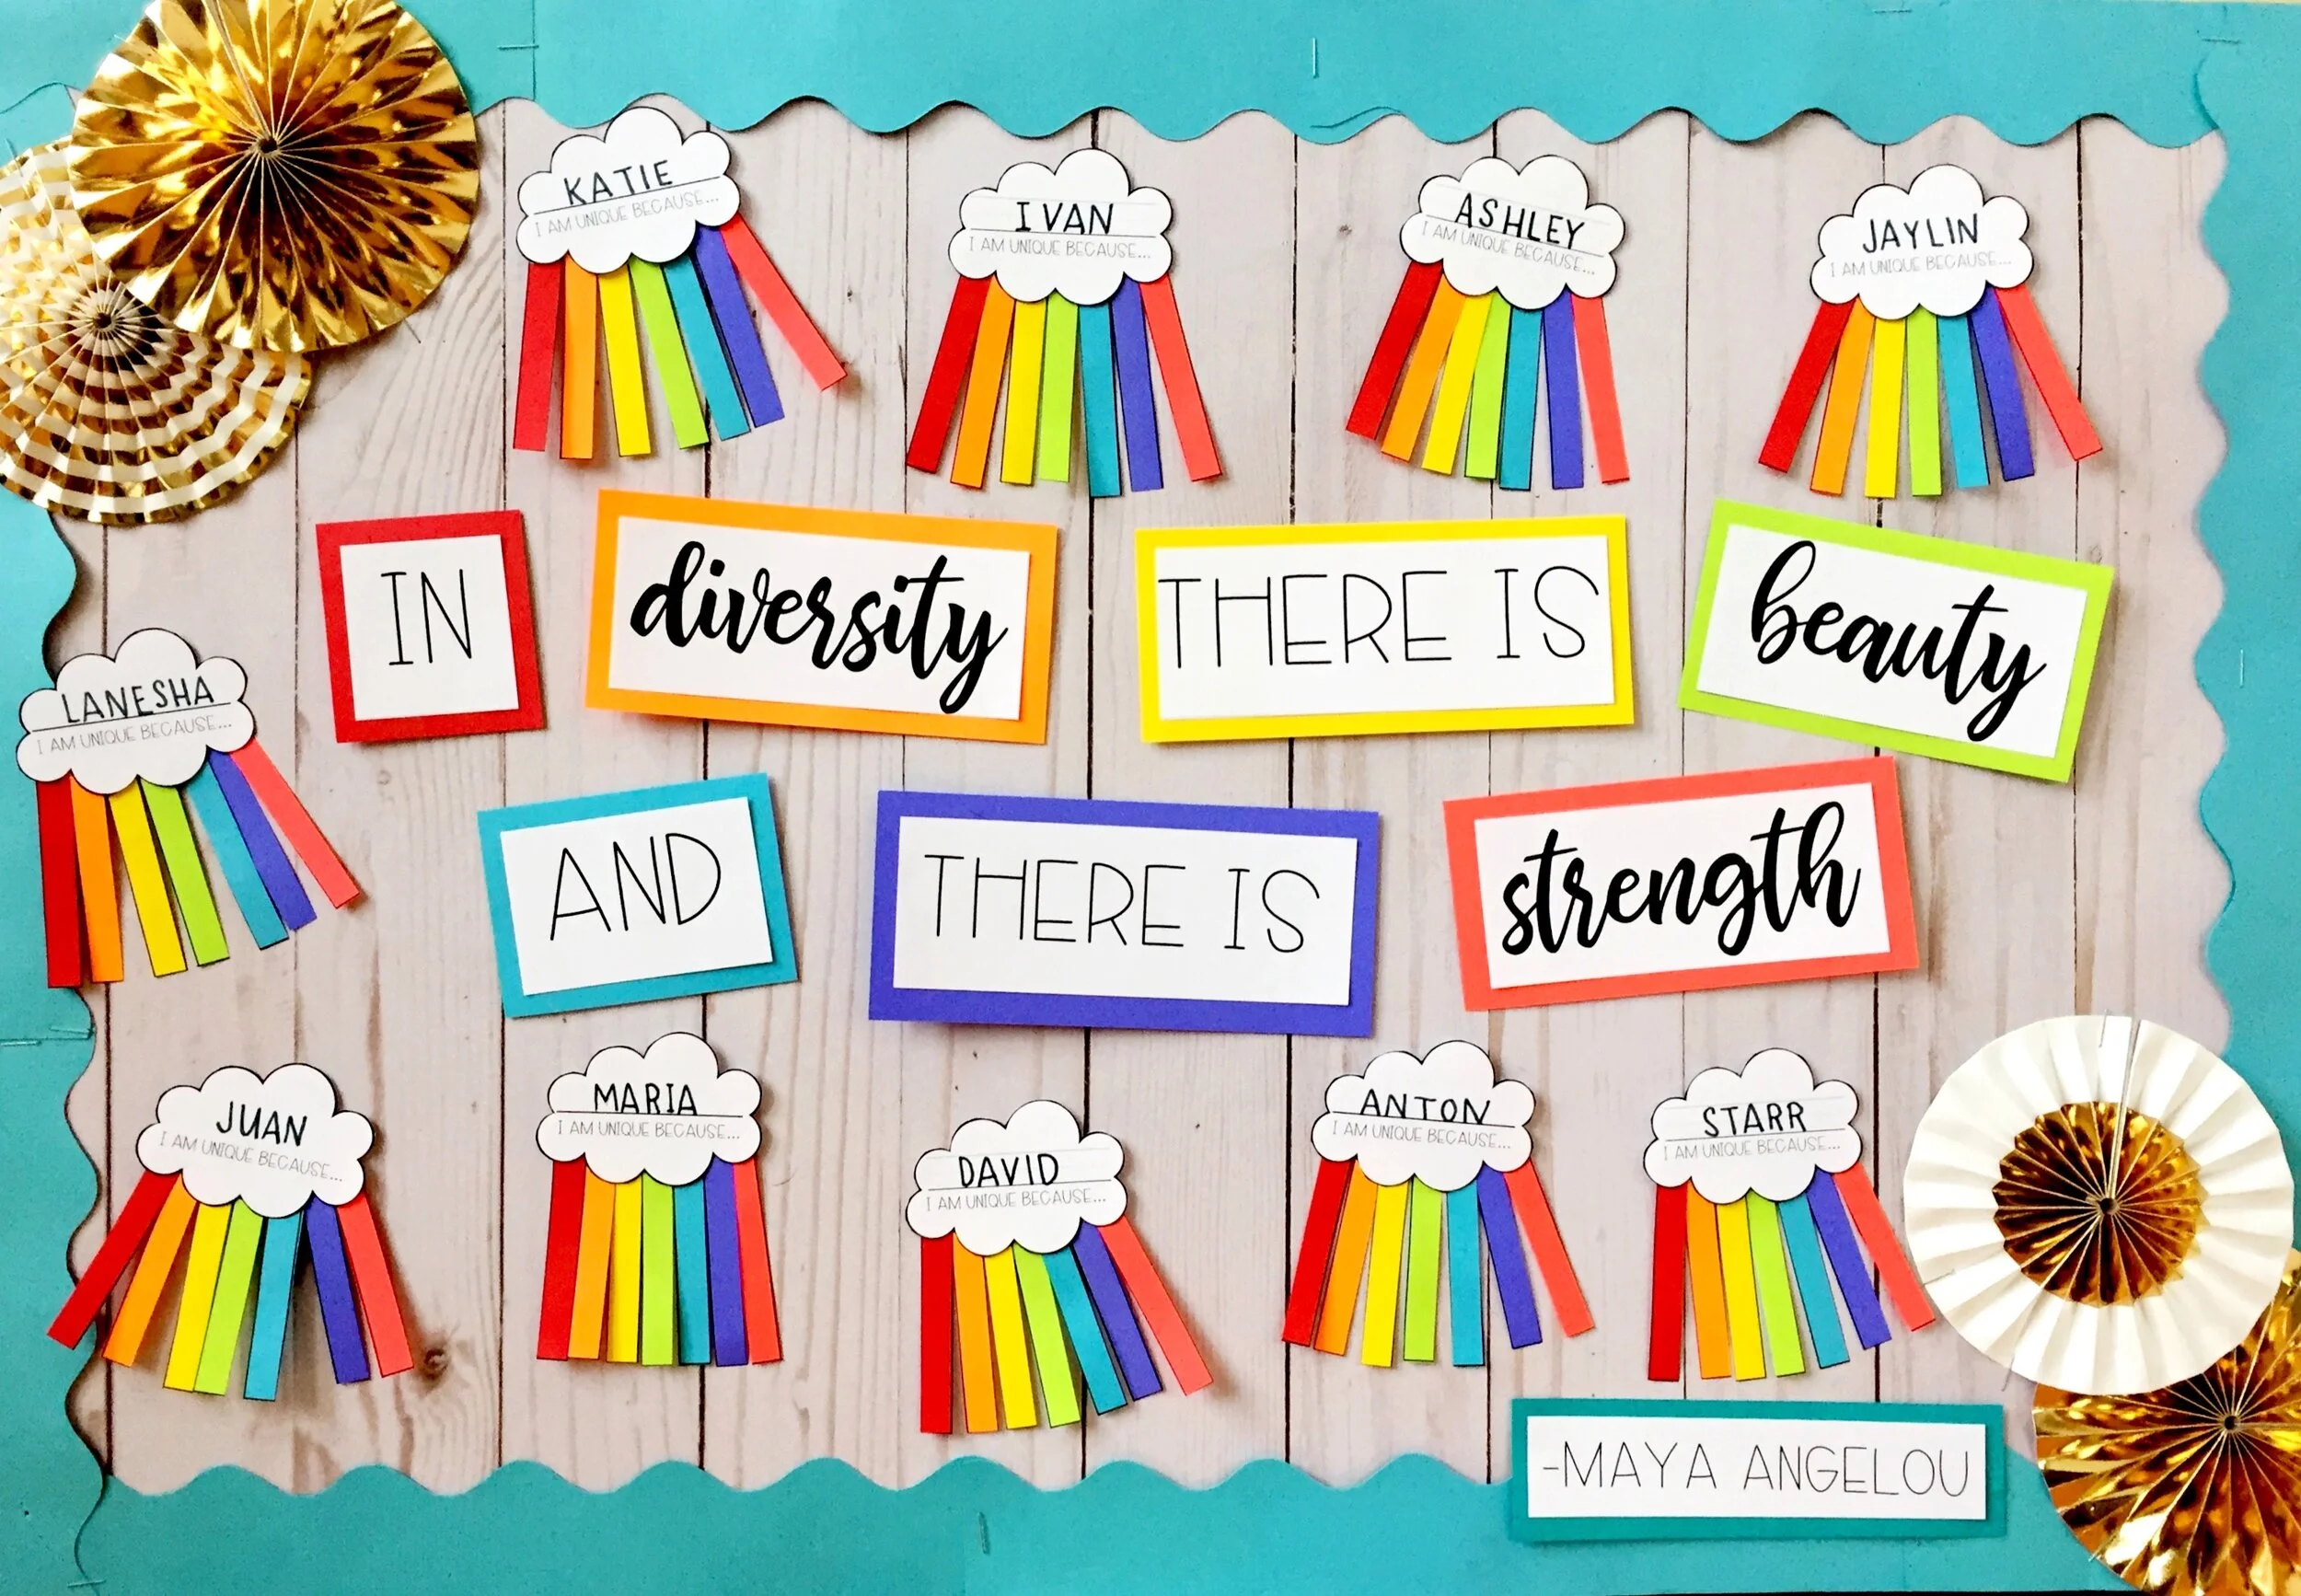 KATIE
I AM UNIQUE BECAUSE...
IVAN
I AM UNIQUE BECAUSE...
ASHLEY
I AM UNIQUE BECAUSE...
JAYLIN
I AM UNIQUE BECAUSE...
IN diversity THERE IS beauty
LANESHA
I AM UNIQUE BECAUSE...
AND THERE IS strength
JUAN
I AM UNIQUE BECAUSE...
MARIA
I AM UNIQUE BECAUSE...
DAVID
I AM UNIQUE BECAUSE...
ANTON
I AM UNIQUE BECAUSE...
STARR
I AM UNIQUE BECAUSE...
-MAYA ANGELOU